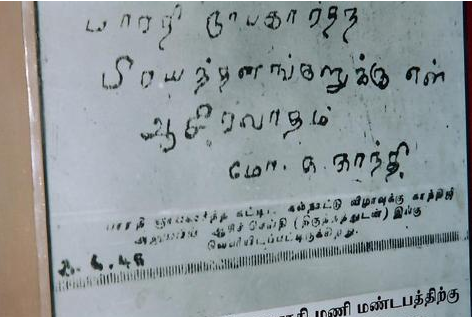 பாரதி ஞாபகார்த்த
பிரயத்தனங்களுக்கு என்
ஆசீர்வாதம்
மோ. க. காந்தி
பாரதி ஞாபகார்த்த கட்டிட கல்நாட்டு விழாவுக்கு காந்திஜி
அனுப்பிய ஆசிச் செய்தி (திருத்தத்துடன்) இங்கு
வெளியிடப்பட்டிருக்கிறது.
மணி மண்டபத்திற்கு